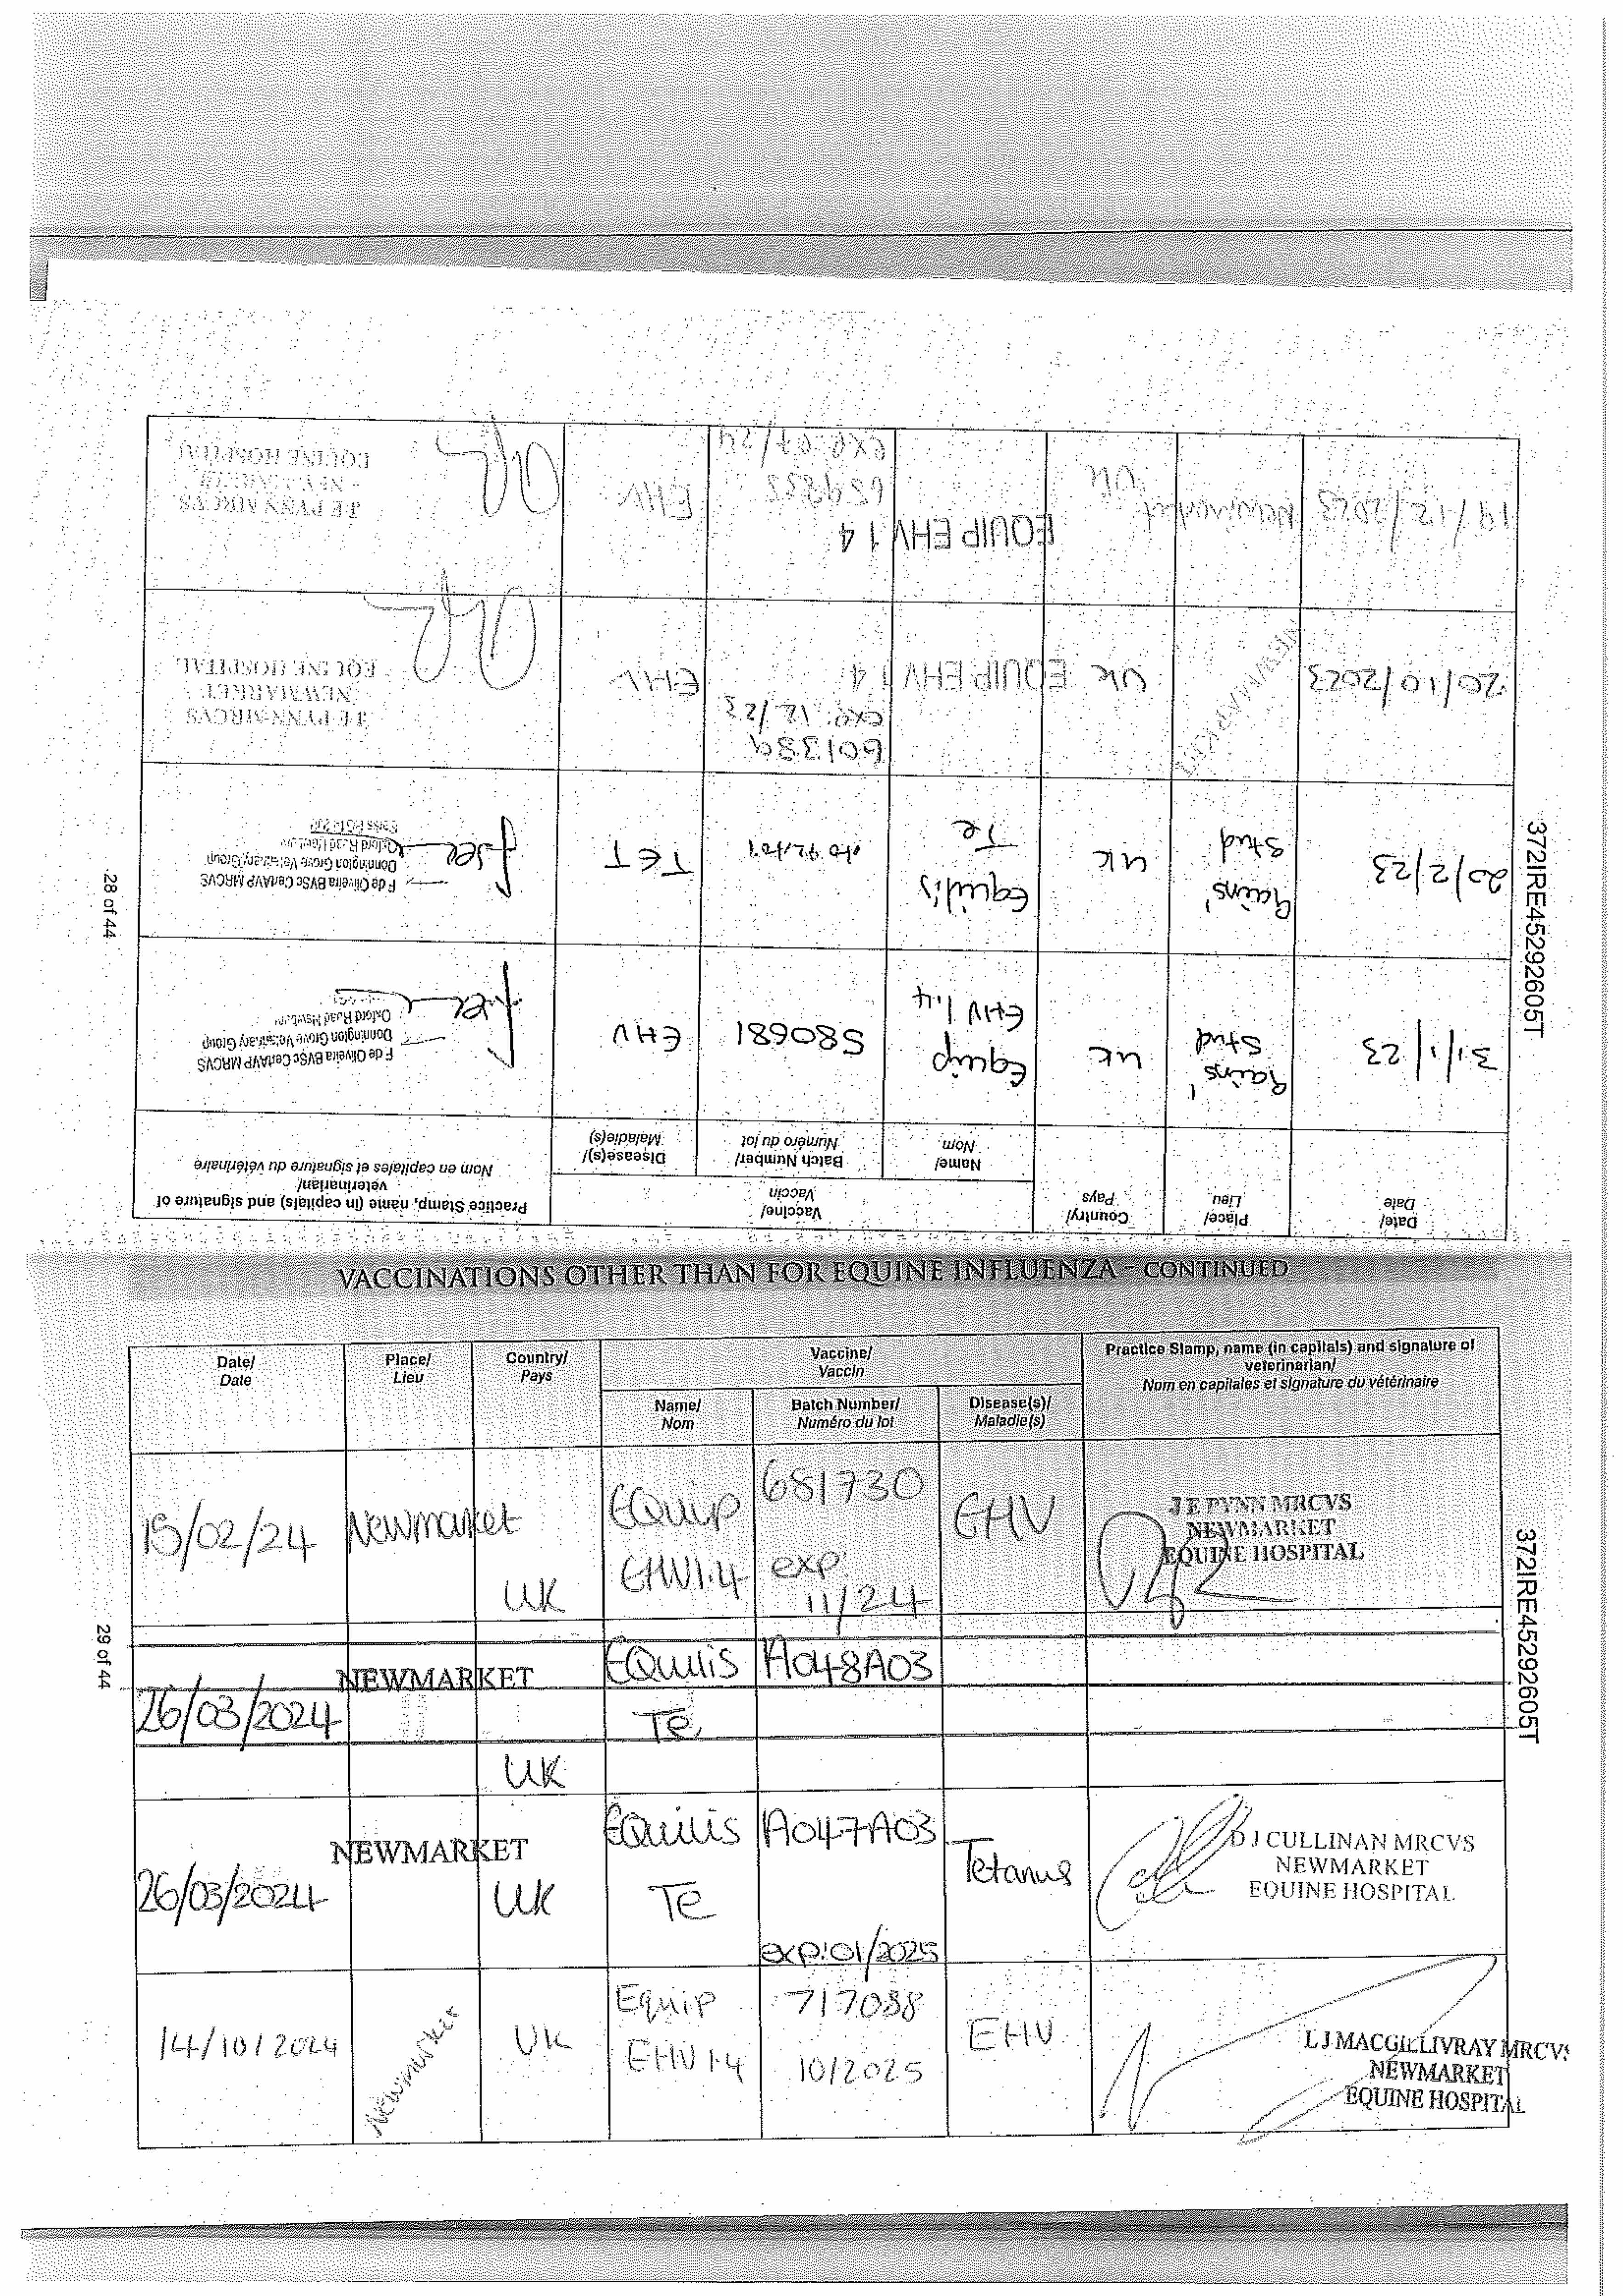 VACCINATIONS OTHER THAN FOR EQUINE INFLUENZA - CONTINUED
28 of 44
372IRE45292605T
Date/ Date
Place/ Lieu
Country/ Pays
Vaccine/ Vaccin
Name/ Nom
Batch Number/ Numéro du lot
Disease(s)/ Maladie(s)
Practice Stamp, name (in capitals) and signature of veterinarian/
Nom en capitales et signature du vétérinaire
31/1/23
Stud
UK
Equip EHV 1.4
580681
EHV
F de Oliveira BVSc CertAVP MRCVS
Donnington Grove Veterinary Group
Oxford Road Newbury
20/2/23
Stud
UK
Equilis Te
TET
F de Oliveira BVSc CertAVP MRCVS
Donnington Grove Veterinary Group
Oxford Road
20/10/2023
NEWMARKET
UK
EQUIP EHV 1 4
exp. 12/23
EHV
J E PYNN MRCVS
NEWMARKET
EQUINE HOSPITAL
19/12/2023
Newmarket
UK
EQUIP EHV 1 4
exp 07/24
EHV
J E PYNN MRCVS
NEWMARKET
EQUINE HOSPITAL
29 of 44
372IRE45292605T
Date/ Date
Place/ Lieu
Country/ Pays
Vaccine/ Vaccin
Name/ Nom
Batch Number/ Numéro du lot
Disease(s)/ Maladie(s)
Practice Stamp, name (in capitals) and signature of veterinarian/
Nom en capitales et signature du vétérinaire
15/02/24
Newmarket
UK
EQuip EHV1.4
681730
exp: 11/24
EHV
J E PYNN MRCVS
NEWMARKET
EQUINE HOSPITAL
26/03/2024
NEWMARKET
UK
EQuilis Te
A048A03
26/03/2024
NEWMARKET
UK
EQuilis Te
A047A03
exp:01/2025
Tetanus
D J CULLINAN MRCVS
NEWMARKET
EQUINE HOSPITAL
14/10/2024
Newmarket
UK
Equip EHV 1.4
717088
10/2025
EHV
L J MACGILLIVRAY MRCVS
NEWMARKET
EQUINE HOSPITAL